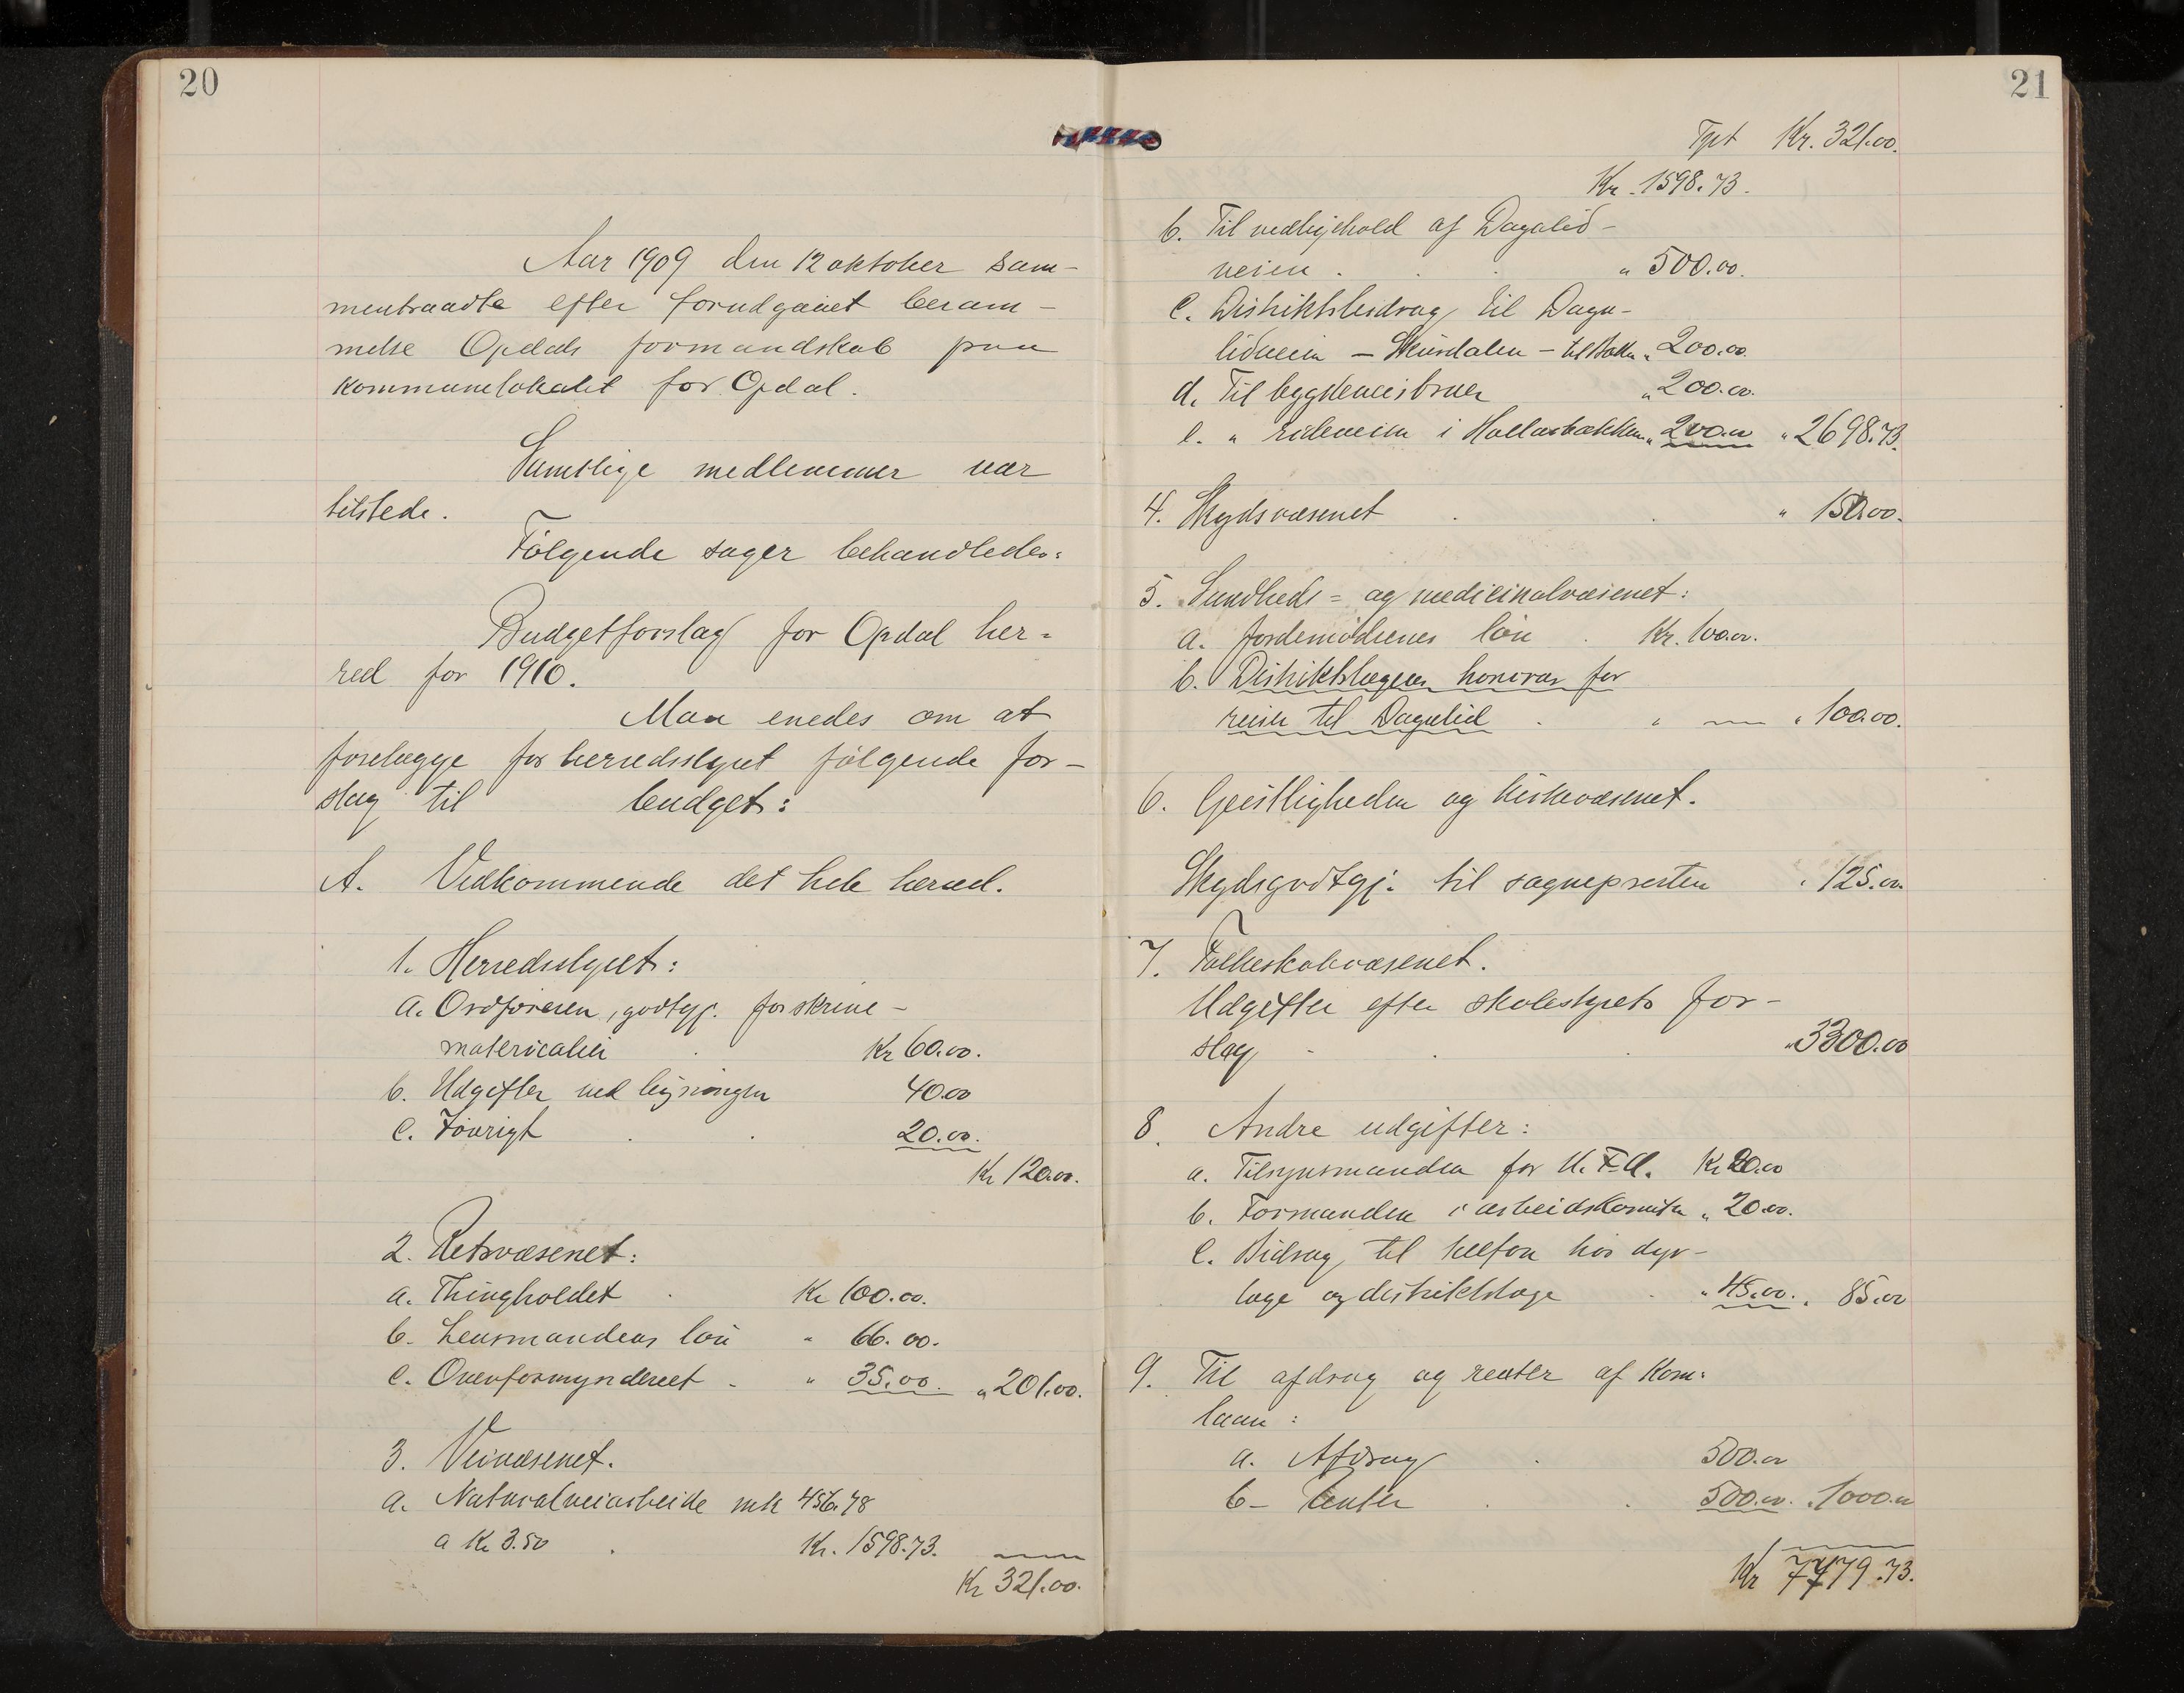 20
Aar 1909 den 12 oktober sam-
mentraadte efter forudgaaet beram-
melse Opdals formandskab paa
kommunelokalet for Opdal.
Samtlige medlemmer var
tilstede.
Følgende sager behandledes:
Budgetforslag for Opdal her-
red for 1910.
Man enedes om at
forelægge for herredsstyret følgende for-
slag til budget:
A. Vedkommende det hele herred.
1. Herredsstyret:
a. Ordføreren, godtgj. for skrive-
materialier . Kr 60.00.
b. Udgifter ved ligningen 40.00
c. Forøvrigt . . 20.00.
Kr 120.00.
2. Retsvæsenet:
a. Thingholdet . Kr 100.00.
b. Lensmandens løn " 66.00.
c. Overformynderiet - " 35.00. " 201.00.
3. Veivæsenet.
a. Naturalveiarbeide mk 456.78
a Kr 3.50 . Kr. 1598.73.
Kr 321.00.
21
Tpt Kr. 321.00.
Kr. 1598.73.
b. Til vedligehold af Dagalid-
veien . . . " 500.00.
c. Distriktsbidrag til Daga-
lidveien – Skurdalen – " 200.00.
d. Til bygdeveisbruer " 200.00.
e. " rideveien i " 200.00 " 2698.73.
4. Skydsvæsenet . . " 150.00.
5. Sundheds- og medicinalvæsenet:
a. Jordemødrenes løn . Kr. 100.00.
b. Distriktslægens honorar for
reise til Dagalid . " — " 100.00.
6. Geistligheden og kirkevæsenet.
Skydsgodtgj. til sognepresten " 125.00.
7. Folkeskolevæsenet.
Udgifter efter skolestyrets for-
slag . . . " 3300.00
8. Andre udgifter:
a. Tilsynsmanden for U. F. A. Kr 20.00
b. Formanden i arbeidskomiten " 20.00.
c. Bidrag til telefon hos dyr-
læge og distriktslæge . " 45.00. " 85.00
9. Til afdrag og renter af kom.
laan :
a. Afdrag . 500.00
b - Renter . . 500.00. " 1000.00
Kr 7979.73.